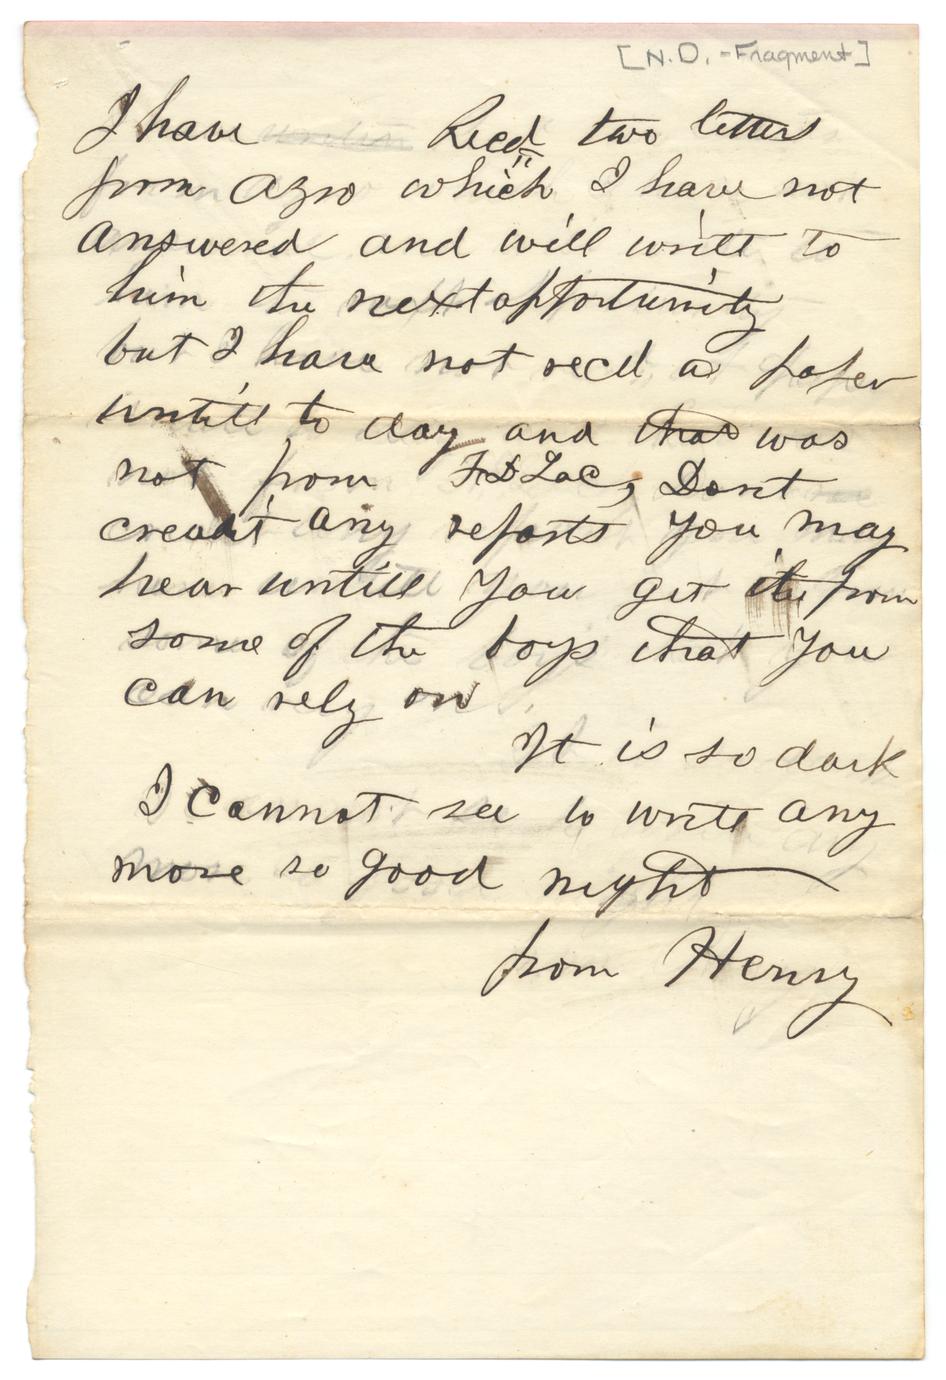 [N.D. - Fragment]
I have Recd two letters
from Azro which I have not
answered and will write to
him the next opportunity
but I have not recd a paper
untill to day and that was
not from FDLac, Dont
creadit any reports you may
hear untill you get it from
some of the boys that you
can rely on
It is so dark
I cannot see to write any
more so good night
from Henry